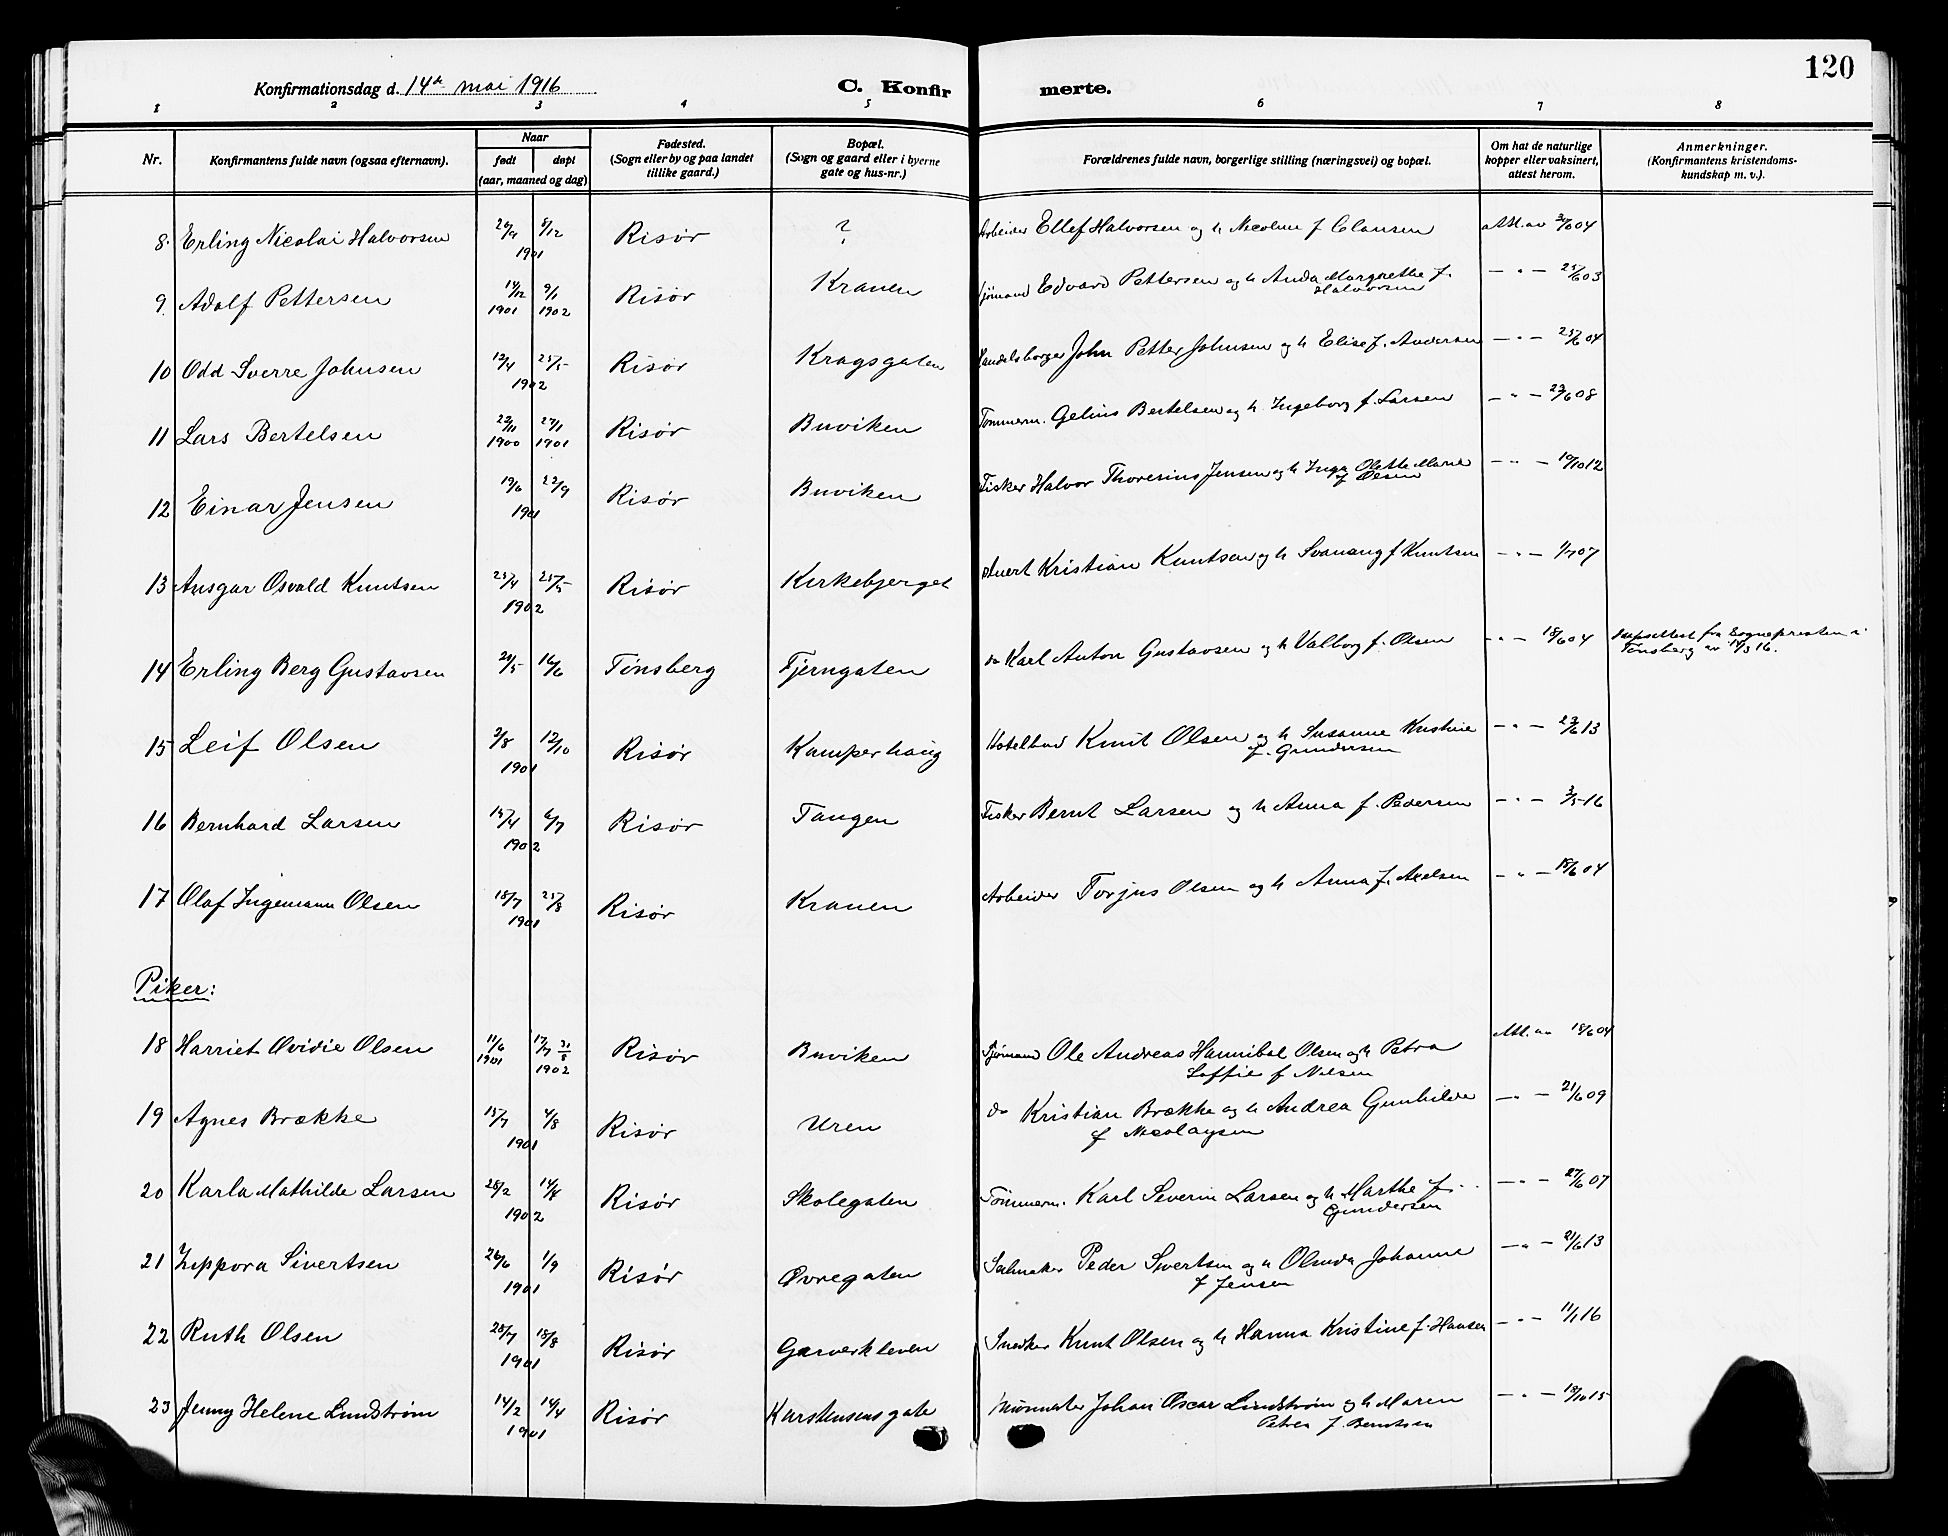 120
Konfirmationsdag d. 14de mai 1916 C. Konfir merte.
1 2 3 4 5 6 7 8
Nr. Konfirmantens fulde navn (ogsaa efternavn). Naar født døpt (aar, maaned og dag) Fødested. (Sogn eller by og paa landet tillike gaard.) Bopæl. (Sogn og gaard eller i byerne gate og hus-nr.) Forældrenes fulde navn, borgerlige stilling (næringsvei) og bopæl. Om hat de naturlige kopper eller vaksinert, attest herom. Anmerkninger. (Konfirmantens kristendoms-kundskap m. v.).
8 Erling Nicolai Halvorsen 26/9 8/12 1901 Risør ? Arbeider Ellef Halvorsen og h Nicoline f Clausen Att. av 04
9. Adolf Pettersen 14/12 1901 9/1 1902 Risør Kranen Sjømand Edvard Pettersen og h Anda Margrethe f. Halvorsen — " — 25/6 03
10 Odd Sverre Johnsen 12/4 25/5 1902 Risør Kragsgaten Handelsborger John Petter Johnsen og h Elise f. Andersen — " — 25/6 04
11 Lars Bertelsen 22/11 1900 27/1 1901 Risør Buviken Tømmerm. Gelius Bertelsen og h. Ingeborg f. Larsen — " — 23/6 08
12 Einar Jensen 19/6 22/9 1901 Risør Buviken Fisker Halvor Thoresius Jensen og h Inga Olette Marie f Olsen — " — 19/10 12
13 Ansgar Osvald Knutsen 23/4 25/5 1902 Risør Kirkebjerget Stuert Kristian Knutsen og h Svanaug f Knutsen — " — 1/7 07
14 Erling Berg Gustavsen 21/5 16/6 Tønsberg Tjerngaten do Karl Anton Gustavsen og h Valborg f. Olsen — " — 18/6 04 Daapsattest fra Sognepresten i Tønsberg av 14/3 16.
15 Leif Olsen 2/8 12/10 1901 Risør Kamperhaug Hotelbud Knut Olsen og h Susanne Kristine f. Gundersen — " — 23/6 13
16 Bernhard Larsen 15/4 6/7 1902 Risør Tangen Fisker Bernt Larsen og h Anna f. Pedersen — " — 3/5 16
17 Olaf Ingemann Olsen 18/7 25/8 1901 Risør Kranen Arbeider Torjus Olsen og h Anna f. Axelsen — " — 18/6 04
Piker:
18 Harriet Ovidie Olsen 11/6 1901 17/7 31/8 1902 Risør Buviken Sjømand Ole Andreas Hannibal Olsen og h Petra Soffie f Nilsen Att. av 18/6 04
19 Agnes Brække 15/7 4/8 1901 Risør Uren do Kristian Brække og h Andrea Gunhilde f Nicolaysen — " — 21/6 09
20 Karla Mathilde Larsen 28/2 14/4 1902 Risør Skolegaten Tømmerm. Karl Severin Larsen og h Marthe f. Gundersen — " — 27/6 07
21 Zippora Sivertsen 26/6 1/9 1901 Risør Øvregaten Seilmaker Peder Sivertsen og h Olinda Johanne f Jensen — " — 21/6 13
22 Ruth Olsen 28/7 18/8 1901 Risør Garverkleven Snedker Knut Olsen og h Hanna Kristine f. Hansen — " — 11/1 16
23 Jenny Helene Lundstrøm 14/2 14/4 1901 Risør Karstensensgate Minørmester Johan Oscar Lundstrøm og h Maren Petrea f. Berntsen — " — 19/10 15